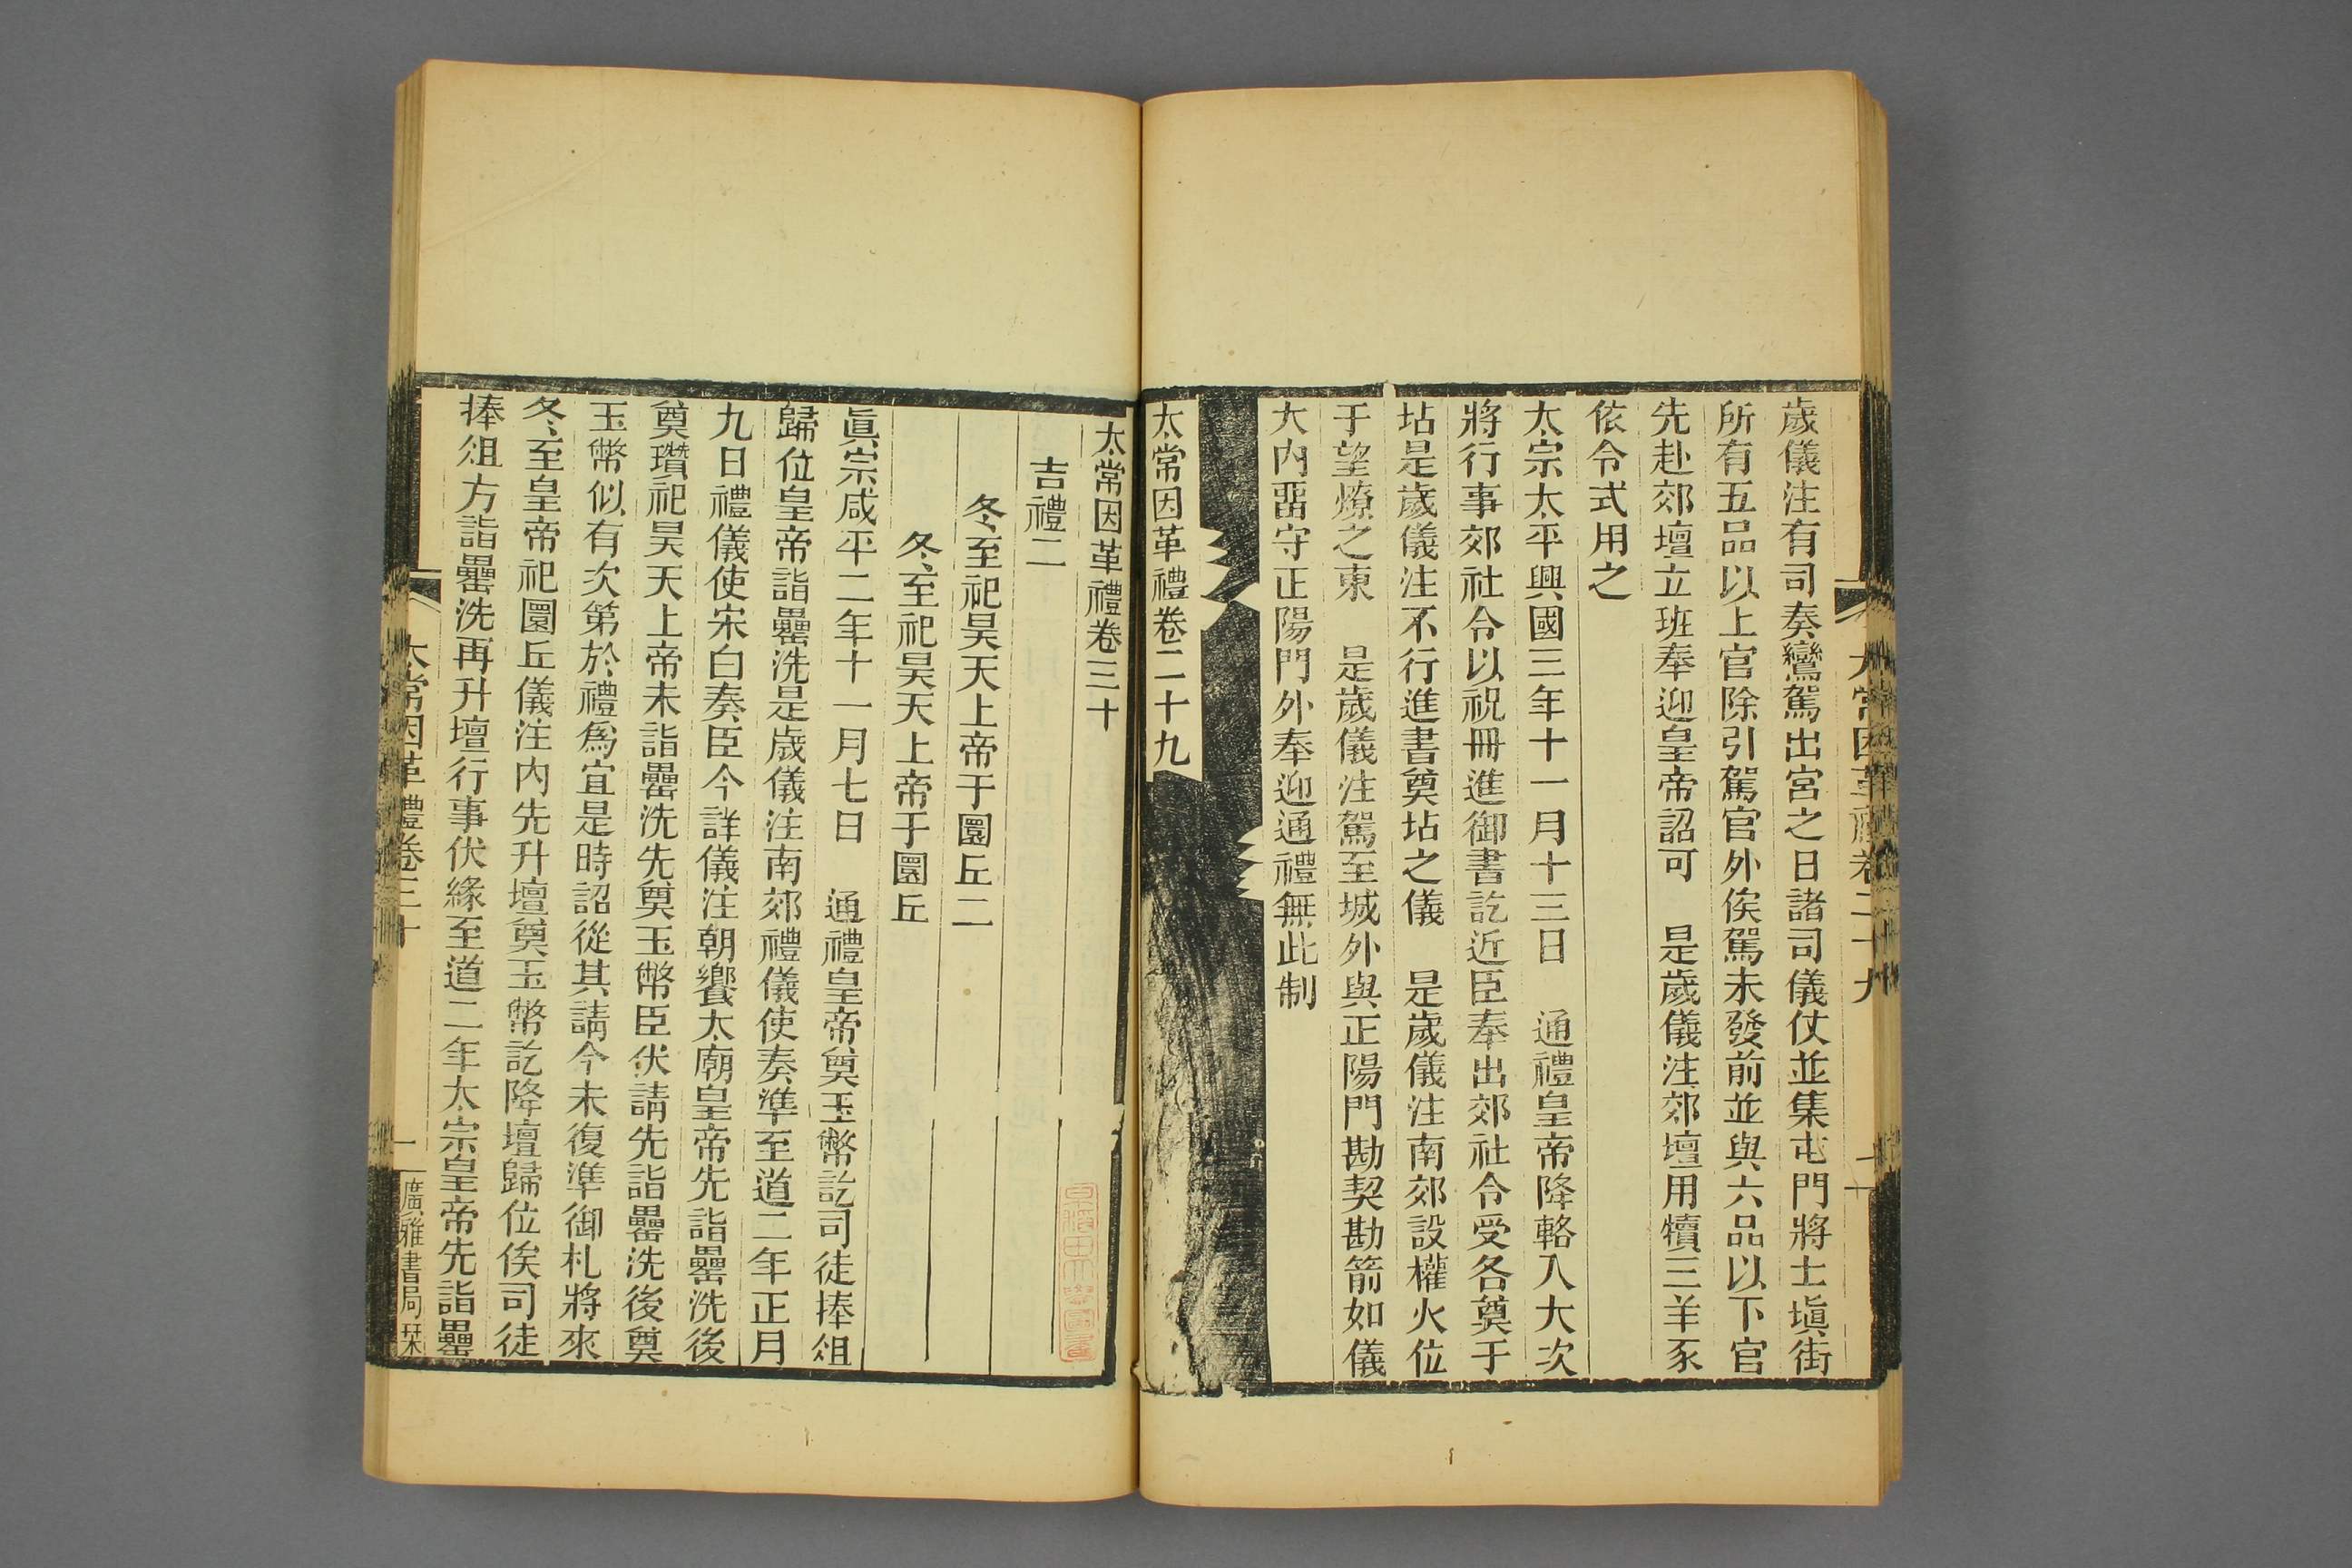 歲儀注有司奏鸞駕出宮之日諸司儀仗並集屯門將士塡街
所有五品以上官除引駕官外俟駕未發前並與六品以下官
先赴郊壇立班奉迎皇帝詔可　是歲儀注郊壇用犢三羊豕
依令式用之
太宗太平興國三年十一月十三日　通禮皇帝降輅入大次
將行事郊社令以祝冊進御書訖近臣奉出郊社令受各奠于
坫是歲儀注不行進書奠坫之儀　是歲儀注南郊設權火位
于望燎之東　是歲儀注駕至城外與正陽門勘契勘箭如儀
大內畱守正陽門外奉迎通禮無此制
太常因革禮卷二十九
太常因革禮卷三十
吉禮二
冬至祀昊天上帝于圜丘二
冬至祀昊天上帝于圜丘
眞宗咸平二年十一月七日　通禮皇帝奠玉幣訖司徒捧俎
歸位皇帝詣罍洗是歲儀注南郊禮儀使奏準至道二年正月
九日禮儀使宋白奏臣今詳儀注朝饗太廟皇帝先詣罍洗後
奠瓚祀昊天上帝未詣罍洗先奠玉幣臣伏請先詣罍洗後奠
玉幣似有次第於禮爲宜是時詔從其請今未復準御札將來
冬至皇帝祀圜丘儀注內先升壇奠玉幣訖降壇歸位俟司徒
捧俎方詣罍洗再升壇行事伏緣至道二年太宗皇帝先詣罍
太常因革禮卷三十
一
廣雅書局栞